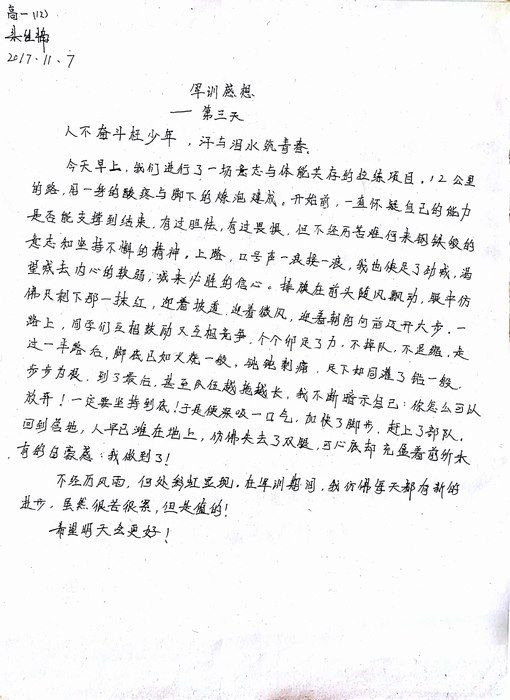 高一(12)
2017.11.7
军训感想
——第三天
人不奋斗枉少年，汗与泪水筑青春。
今天早上，我们进行了一场意志与体能共存的拉练项目。12公里
的路，用一身的酸疼与脚下的燎泡建成。开始前，一直怀疑自己的能力
是否能支撑到结束，有过胆怯，有过畏惧，但不经历苦难何来钢铁般的
意志和坚持不懈的精神。上路，口号声一浪接一浪，我也使足了劲喊，渴
望喊去内心的软弱，喊来必胜的信心。摔旗在前头随风飘动，眼中仿
佛只剩下那一抹红，迎着坡道，迎着微风，迎着朝阳向前迈开大步。一
路上，同学们互相鼓励又互相竞争，个个卯足了力，不掉队，不退缩。走
过一半路后，脚底已如火烧一般，钝钝刺痛，足下如同灌了铅一般，
步步为艰。到了最后，甚至队伍越拖越长，我不断暗示自己：你怎么可以
放开！一定要坚持到底！于是便深吸一口气，加快了脚步，赶上了部队。
回到营地，人早已瘫在地上，仿佛失去了双腿，可心底却充盈着前所未
有的自豪感：我做到了！
不经历风雨，何处彩虹显现。在军训期间，我仿佛每天都有新的
进步，虽然很苦很累，但是值的！
希望明天会更好！